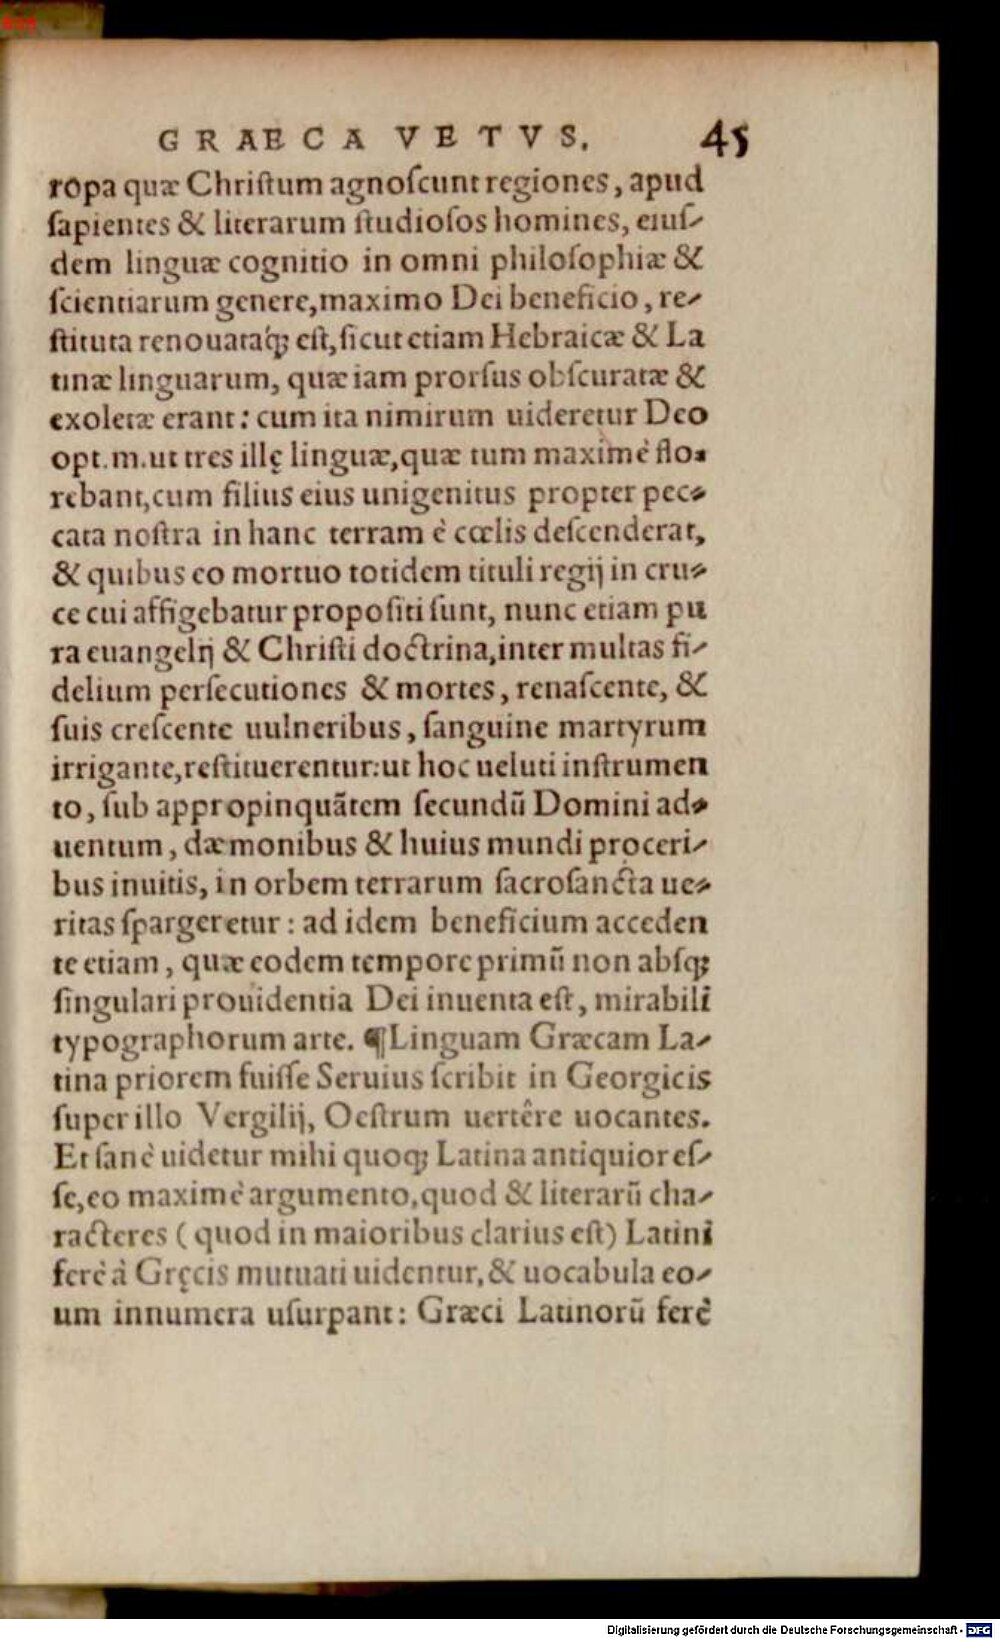 GRAECA VETVS. 45
ropa quæ Chriſtum agnoſcunt regiones, apud
ſapientes & literarum ſtudioſos homines, eiuſ-
dem linguæ cognitio in omni philoſophiæ &
ſcientiarum genere, maximo Dei beneficio, re-
ſtituta renouataq́; eſt, ſicut etiam Hebraicæ & La
tinæ linguarum, quæ iam prorſus obſcuratæ &
exoletæ erant: cum ita nimirum uideretur Deo
opt.m.ut tres illę linguæ, quæ tum maximè flo-
rebant, cum filius eius unigenitus propter pec-
cata noſtra in hanc terram è cœlis deſcenderat,
& quibus eo mortuo totidem tituli regij in cru-
ce cui affigebatur propoſiti ſunt, nunc etiam pu
ra euangelij & Chriſti doctrina, inter multas fi-
delium perſecutiones & mortes, renaſcente, &
ſuis creſcente uulneribus, ſanguine martyrum
irrigante, reſtituerentur: ut hoc ueluti inſtrumen
to, ſub appropinquãtem ſecundũ Domini ad-
uentum, dæmonibus & huius mundi proceri-
bus inuitis, in orbem terrarum ſacroſancta ue-
ritas ſpargeretur: ad idem beneficium acceden
te etiam, quæ eodem tempore primũ non abſq;
ſingulari prouidentia Dei inuenta eſt, mirabili
typographorum arte. ¶Linguam Græcam La-
tina priorem fuiſſe Seruius ſcribit in Georgicis
ſuper illo Vergilij, Oeſtrum uertêre uocantes.
Et ſanè uidetur mihi quoq; Latina antiquior eſ-
ſe, eo maximè argumento, quod & literarũ cha-
racteres (quod in maioribus clarius eſt) Latini
ferè à Gręcis mutuati uidentur, & uocabula eo-
um innumera uſurpant: Græci Latinorũ ferè
Digitalisierung gefördert durch die Deutsche Forschungsgemeinschaft - DFG